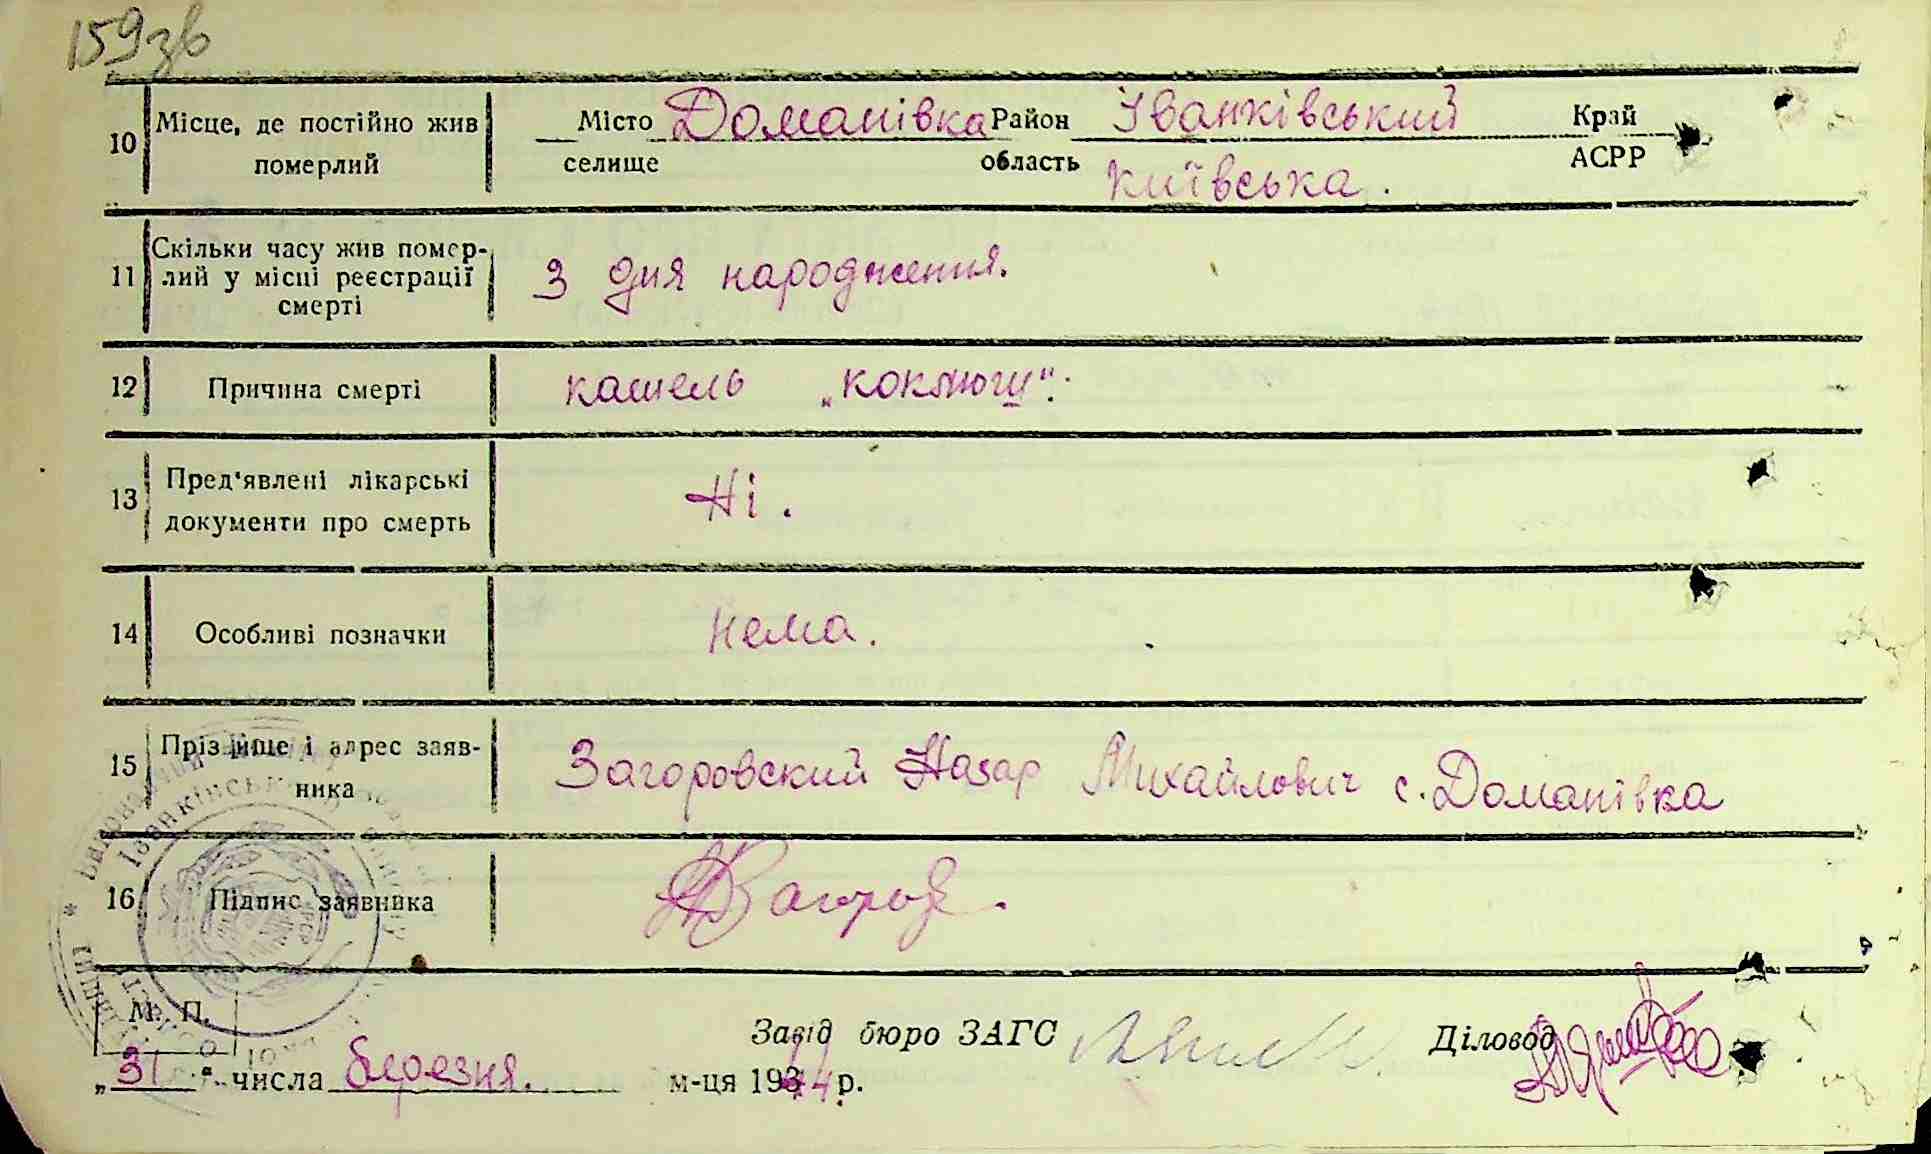 159зв
10 Місце, де постійно жив померлий
Місто Доманівка Район Іванківський Край
селище область Київська. АСРР
11 Скільки часу жив помер-
лий у місці реєстрації
смерті
З дня народження.
12 Причина смерті кашель „коклюш“.
13 Пред'явлені лікарські
документи про смерть
Ні.
14 Особливі позначки нема.
15 Прізвище і адрес заяв-
ника
Загоровский Назар Михайлович с. Доманівка
16 Підпис заявника
М. П.
Завід бюро ЗАГС Діловод
„31“ числа березня. м-ця 1944 р.